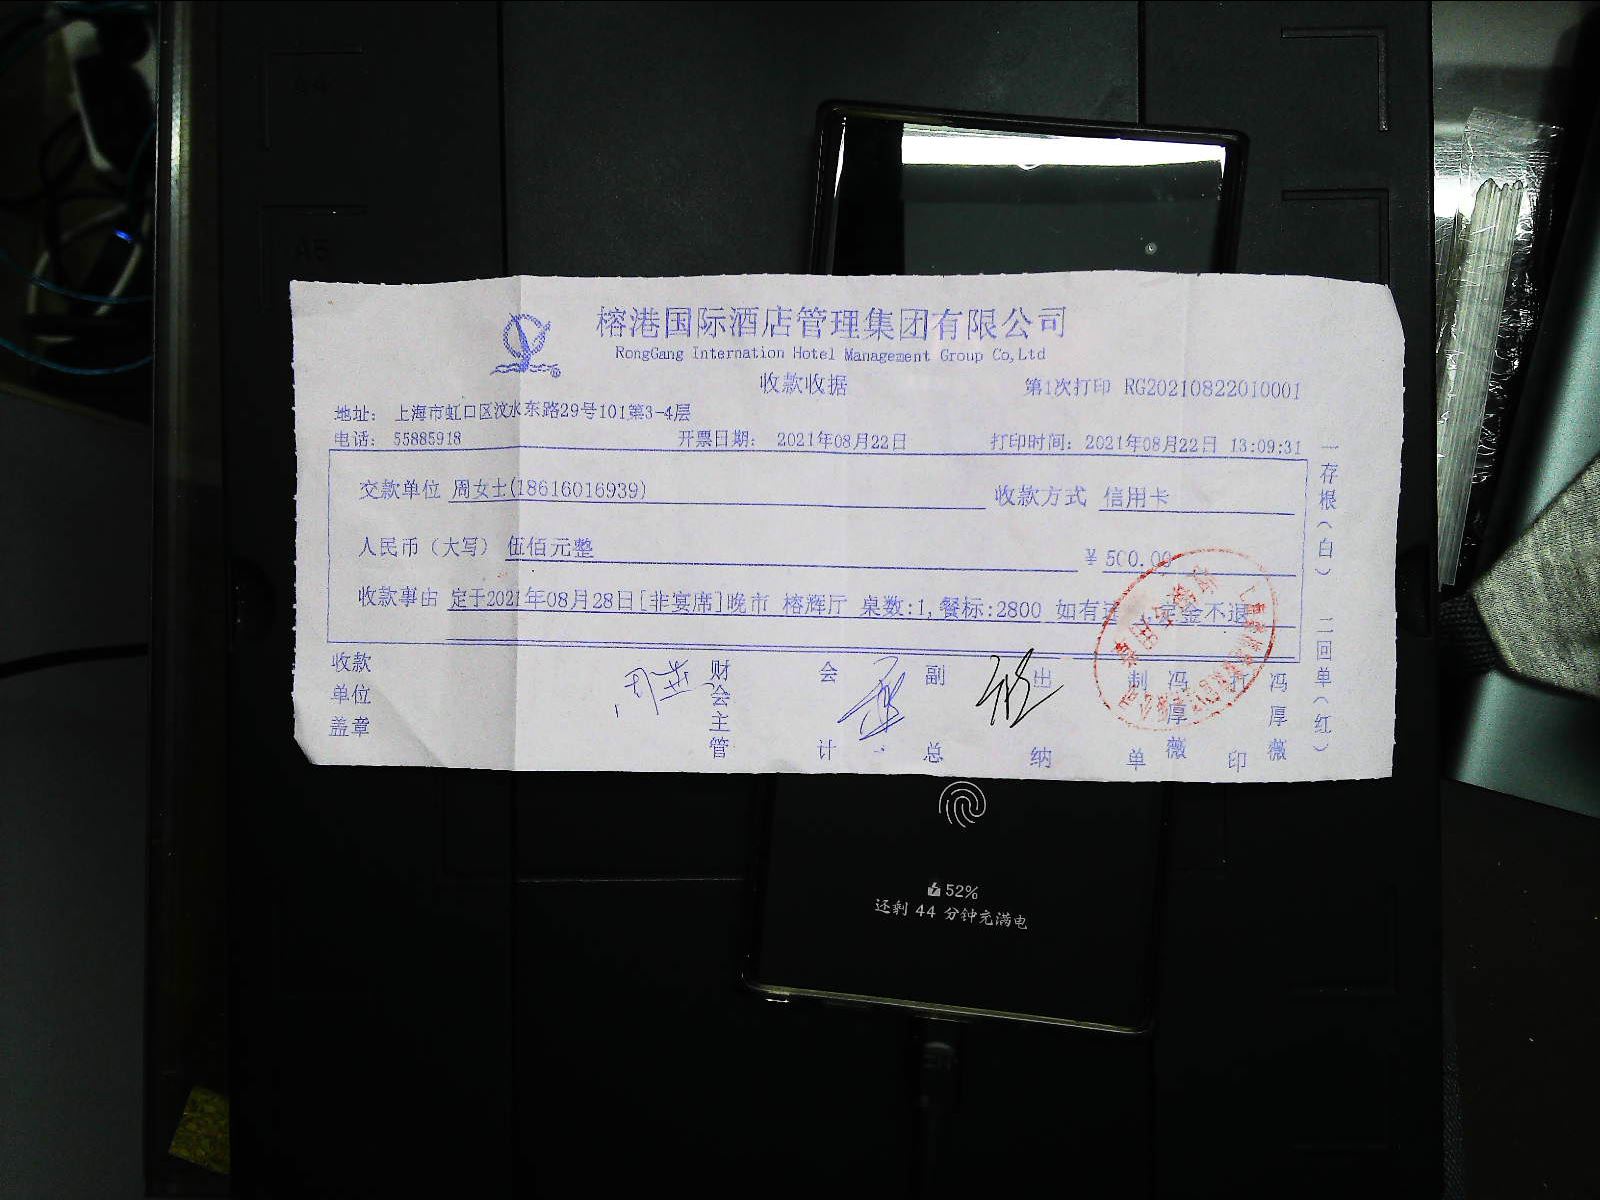 A4
A5
榕港国际酒店管理集团有限公司
RongGang Internation Hotel Management Group Co,Ltd
收款收据
第1次打印 RG20210822010001
地址： 上海市虹口区汶水东路29号101第3-4层
电话： 55885918
开票日期： 2021年08月22日
打印时间：2021年08月22日 13:09:31
交款单位 周女士(18616016939)
收款方式 信用卡
人民币（大写）伍佰元整
￥500.00
收款事由 定于2021年08月28日[非宴席]晚市 榕辉厅 桌数:1,餐标:2800 如有 定金不退
收款单位盖章
财会主管
会计
副总
出纳
制单 冯厚薇
打印 冯厚薇
一存根（白） 二回单（红）
52%
还剩 44 分钟充满电